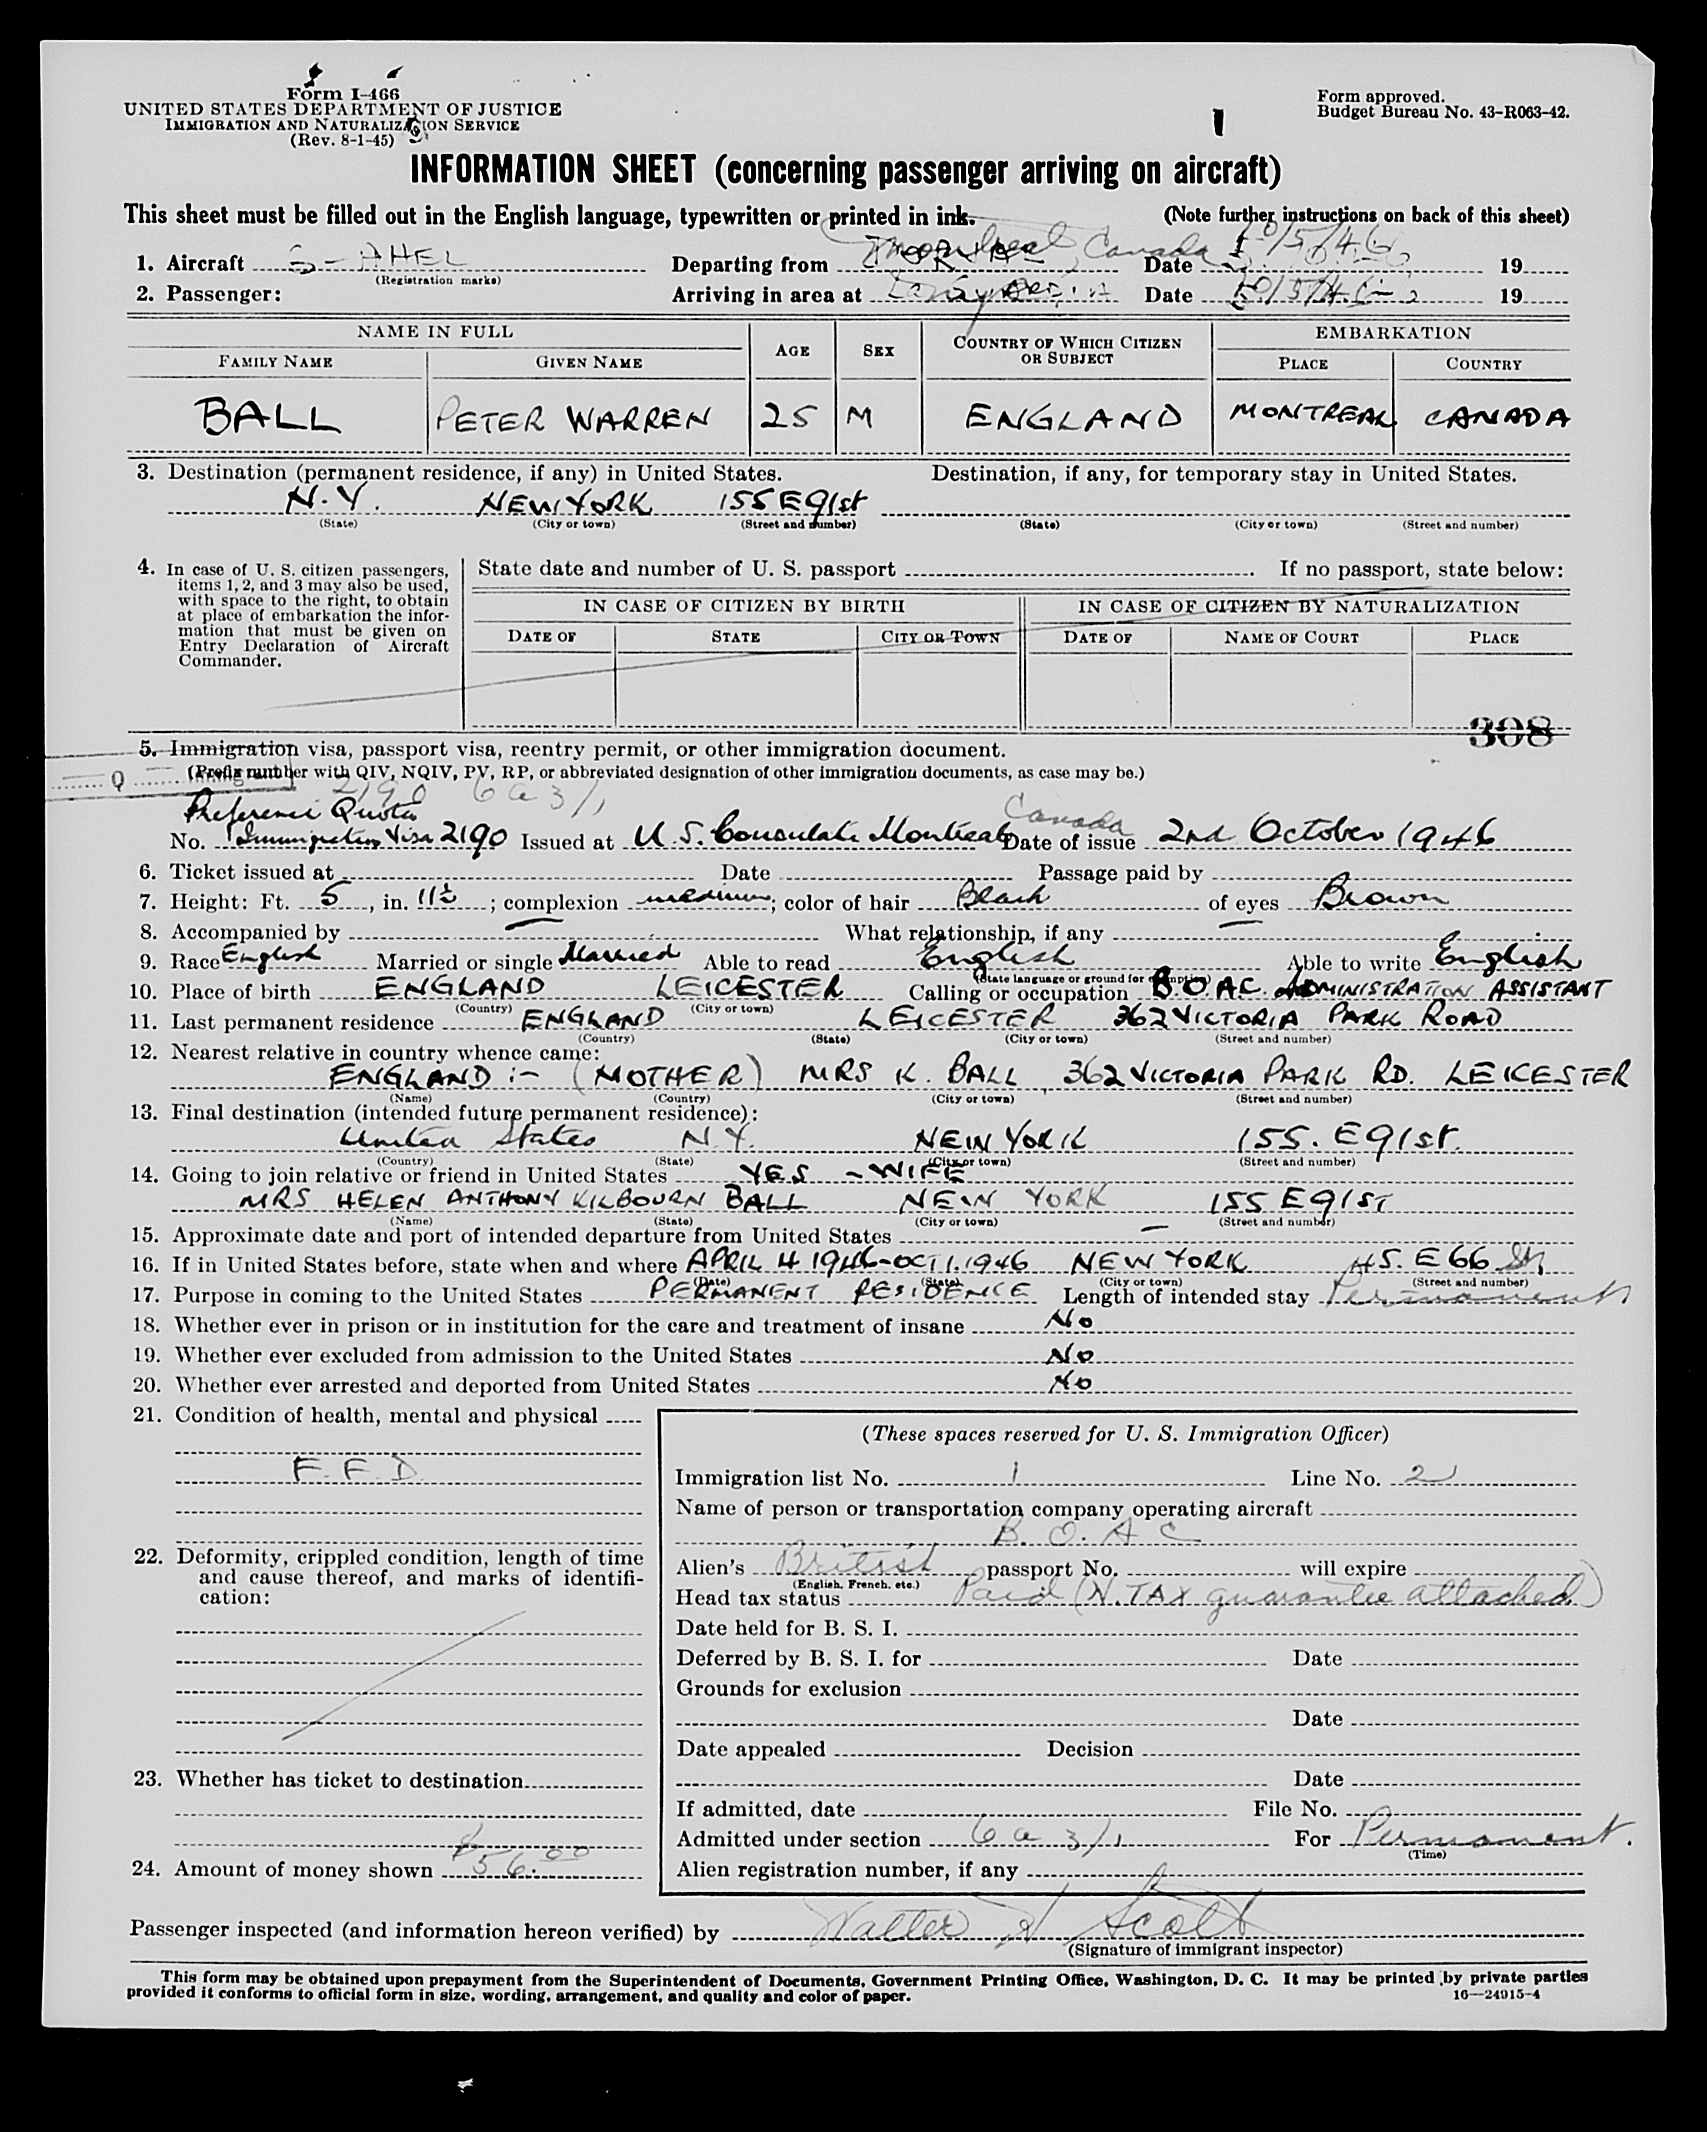 Form I-466
UNITED STATES DEPARTMENT OF JUSTICE
IMMIGRATION AND NATURALIZATION SERVICE
(Rev. 8-1-45)
Form approved.
Budget Bureau No. 43-R063-42.
INFORMATION SHEET (concerning passenger arriving on aircraft)
This sheet must be filled out in the English language, typewritten or printed in ink.
(Note further instructions on back of this sheet)
1. Aircraft G-AHEL Departing from Montreal, Canada Date 10/5/46 19
(Registration marks)
2. Passenger: Arriving in area at Date 10/5/46 19
NAME IN FULL AGE SEX COUNTRY OF WHICH CITIZEN OR SUBJECT EMBARKATION
FAMILY NAME GIVEN NAME PLACE COUNTRY
BALL PETER WARREN 25 M ENGLAND MONTREAL CANADA
3. Destination (permanent residence, if any) in United States. Destination, if any, for temporary stay in United States.
N.Y. NEW YORK 155 E 91st
(State) (City or town) (Street and number) (State) (City or town) (Street and number)
4. In case of U. S. citizen passengers,
items 1, 2, and 3 may also be used,
with space to the right, to obtain
at place of embarkation the infor-
mation that must be given on
Entry Declaration of Aircraft
Commander.
State date and number of U. S. passport If no passport, state below:
IN CASE OF CITIZEN BY BIRTH IN CASE OF CITIZEN BY NATURALIZATION
DATE OF STATE CITY OR TOWN DATE OF NAME OF COURT PLACE
308
5. Immigration visa, passport visa, reentry permit, or other immigration document.
Q (Prefix number with QIV, NQIV, PV, RP, or abbreviated designation of other immigration documents, as case may be.)
2190 6 a 3/1
Preference Quota Canada
No. Immigration Visa 2190 Issued at U.S. Consulate Montreal Date of issue 2nd October 1946
6. Ticket issued at Date Passage paid by
7. Height: Ft. 5, in. 11½; complexion medium; color of hair Black of eyes Brown
8. Accompanied by — What relationship, if any —
9. Race English Married or single Married Able to read English Able to write English
(State language or ground for exemption)
10. Place of birth ENGLAND LEICESTER Calling or occupation B.O.A.C. ADMINISTRATION ASSISTANT
(Country) (City or town)
11. Last permanent residence ENGLAND LEICESTER 362 VICTORIA PARK ROAD
(Country) (State) (City or town) (Street and number)
12. Nearest relative in country whence came:
ENGLAND :- (MOTHER) MRS K. BALL, 362 VICTORIA PARK RD. LEICESTER
(Name) (Country) (City or town) (Street and number)
13. Final destination (intended future permanent residence):
United States N.Y. NEW YORK 155. E 91st.
(Country) (State) (City or town) (Street and number)
14. Going to join relative or friend in United States YES - WIFE
MRS HELEN ANTHONY KILBOURN BALL NEW YORK 155 E 91ST
(Name) (State) (City or town) (Street and number)
15. Approximate date and port of intended departure from United States —
16. If in United States before, state when and where APRIL 4 1946-OCT 1. 1946 NEW YORK 45. E 66 St
(Date) (State) (City or town) (Street and number)
17. Purpose in coming to the United States PERMANENT RESIDENCE Length of intended stay Permanent
18. Whether ever in prison or in institution for the care and treatment of insane No
19. Whether ever excluded from admission to the United States No
20. Whether ever arrested and deported from United States No
21. Condition of health, mental and physical
F. F. D.
22. Deformity, crippled condition, length of time
and cause thereof, and marks of identifi-
cation:
23. Whether has ticket to destination
24. Amount of money shown $56.00
(These spaces reserved for U. S. Immigration Officer)
Immigration list No. 1 Line No. 2
Name of person or transportation company operating aircraft
B. O. A C
Alien's British passport No. will expire
(English, French, etc.)
Head tax status Paid (H. TAX guarantee attached)
Date held for B. S. I.
Deferred by B. S. I. for Date
Grounds for exclusion
Date
Date appealed Decision
Date
If admitted, date File No.
Admitted under section 6 a 3/1 For Permanent.
(Time)
Alien registration number, if any
Passenger inspected (and information hereon verified) by Walter H Scott
(Signature of immigrant inspector)
This form may be obtained upon prepayment from the Superintendent of Documents, Government Printing Office, Washington, D. C. It may be printed by private parties
provided it conforms to official form in size, wording, arrangement, and quality and color of paper.
16—24915-4